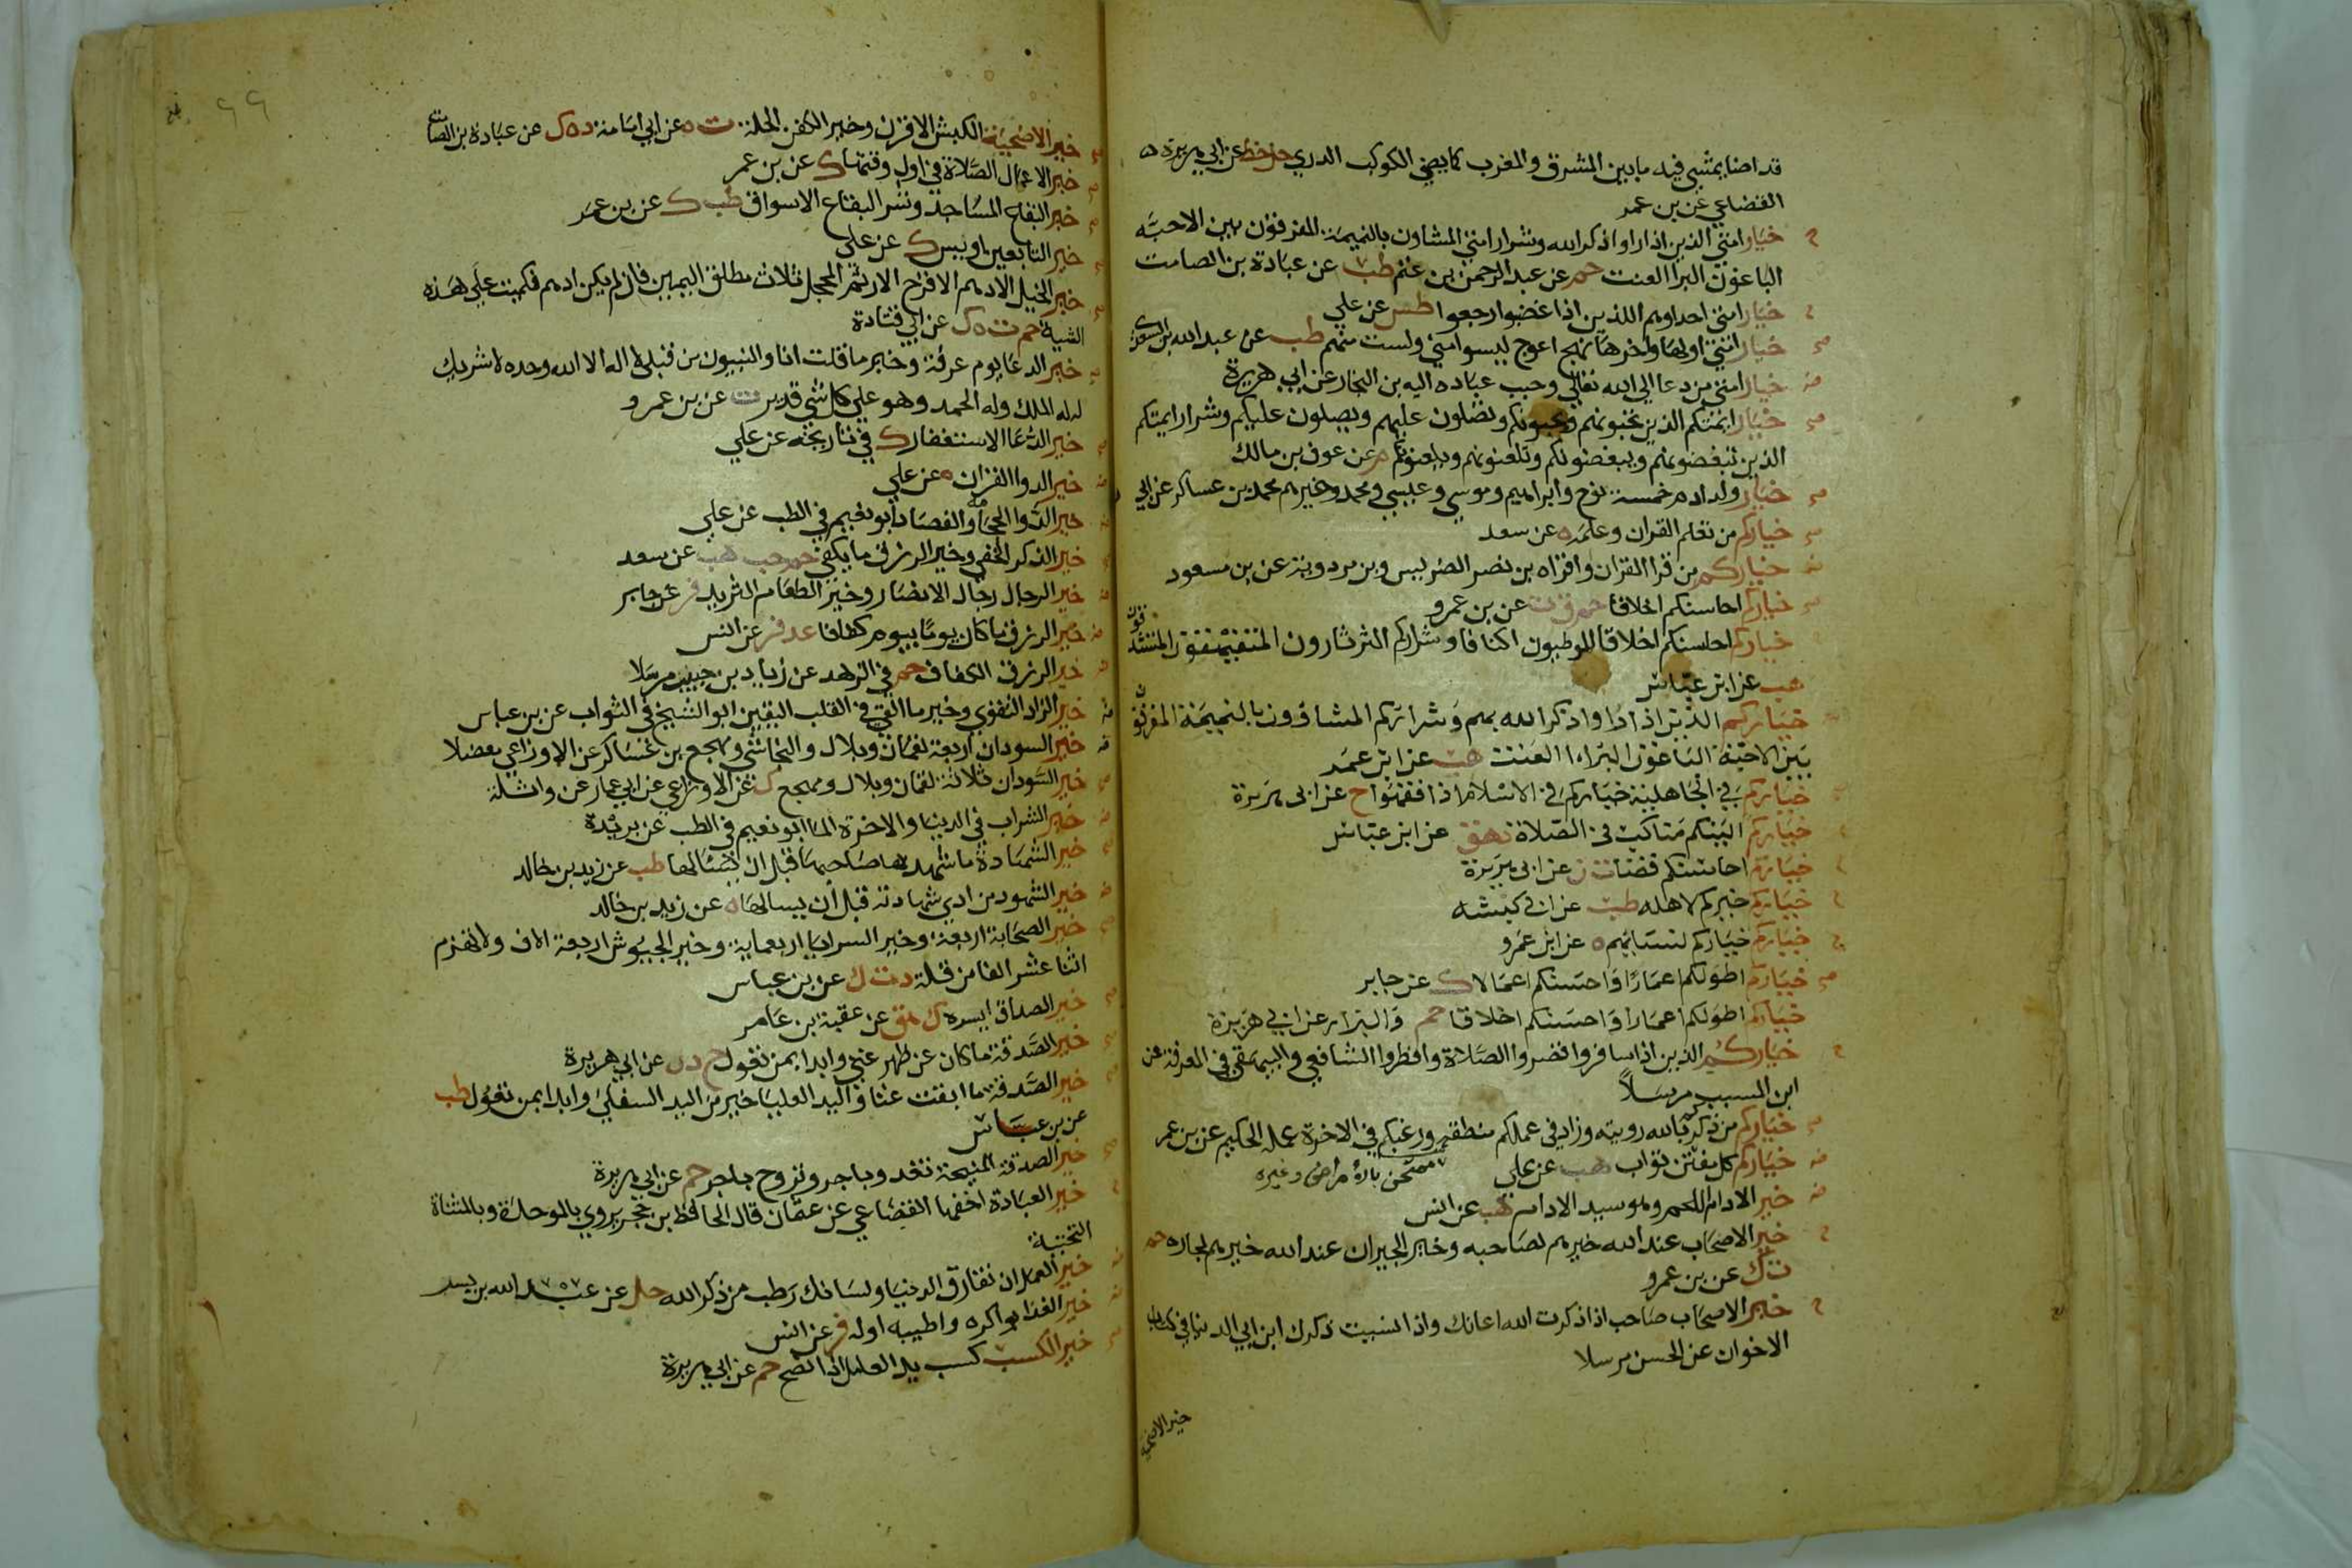 قد اضا يمشي فيه ما بين المشرق والمغرب كما يضي الكوكب الدري حل خط عن ابي هريرة ه
القضاعي عن بن عمر
خيار امتي الذين اذا راوا ذكر الله وشرار امتي المشاون بالنميمة المفرقون بين الاحبه
الباغون البرا العنت حم عن عبد الرحمن بن غنم طب عن عبادة بن الصامت
خيار امتي احداوهم اللذين اذا غضبوا رجعوا طس عن علي
خيار امتي اولها واخرها نهج اعوج ليسوا مني ولست منهم طب عن عبد الله بن السعدي
خيار امتي من دعا الي الله تعالي وحبب عباده اليه بن النجار عن ابي هريرة
خيار ايمتكم الذين تحبونهم ويحبونكم وتصلون عليهم ويصلون عليكم وشرار ايمتكم
الذين تبغضونهم ويبغضونكم وتلعنونهم ويلعنونكم م عن عوف بن مالك
خيار ولد ادم خمسة نوح وابراهيم وموسي وعيسي ومحمد وخيرهم محمد بن عساكر عن ابي
خياركم من تعلم القران وعلمه ه عن سعد
خياركم من قرا القران واقراه بن نصر الضريس وبن مردوية عن بن مسعود
خياركم احاسنكم اخلاقا حم ق ت عن بن عمرو
خياركم احاسنكم اخلاقا الموطيون اكنافا وشراركم الثرثارون المتفيهقون المتشدقون
هب عن ابن عباس
خياركم الذين اذا راوا ذكر الله بهم وشراركم المشاؤون بالنميمة المفرقون
بين الاحبة الباغون البراء العنت هب عن ابن عمر
خياركم في الجاهلية خياركم في الاسلام اذا فقهوا خ عن ابي هريرة
خياركم الينكم مناكب في الصلاة د هق عن ابن عباس
خياركم احاسنكم قضا ت ن عن ابي هريرة
خياركم خيركم لاهله طب عن ابي كبشه
خياركم خياركم لنسائهم ه عن ابن عمرو
خياركم اطولكم اعمارا واحسنكم اعمالا ك عن جابر
خياركم اطولكم اعمارا واحسنكم اخلاقا حم والبزار عن ابي هريرة
خياركم الذين اذا سافروا قصروا الصلاة وافطروا الشافعي والبيهقي في المعرفة عن
ابن المسيب مرسلا
خياركم من ذكركم بالله رويته وزاد في عملكم منطقه ورغبكم في الاخرة عمله الحكيم عن بن عمر
خياركم كل مفتن تواب هب عن علي
خير الادام اللحم وهو سيد الادام هب عن انس
خير الاصحاب عند الله خيرهم لصاحبه وخير الجيران عند الله خيرهم لجاره حم
ت ك عن بن عمرو
خير الاصحاب صاحب اذا ذكرت الله اعانك واذا نسيت ذكرك ابن ابي الدنيا في كتاب
الاخوان عن الحسن مرسلا
خير الاضحية
خير الاضحية الكبش الاقرن وخير الكفن الحلة ت ه عن ابي امامة د ه ك عن عبادة بن الصامت
خير الاعمال الصلاة في اول وقتها ك عن بن عمر
خير البقاع المساجد وشر البقاع الاسواق طب ك عن بن عمر
خير التابعين اويس ك عن علي
خير الخيل الادهم الاقرح الارثم المحجل ثلاث مطلق اليمين فان لم يكن ادهم فكميت علي هذه
الشية حم ت ه ك عن ابي قتادة
خير الدعا يوم عرفة وخير ما قلت انا والنبيون من قبلي لا اله الا الله وحده لا شريك
له له الملك وله الحمد وهو علي كل شي قدير ت عن بن عمرو
خير الدعا الاستغفار ك في تاريخه عن علي
خير الدوا القران ه عن علي
خير الدوا الحجامه والفصاد ابو نعيم في الطب عن علي
خير الذكر الخفي وخير الرزق ما يكفي حم حب هب عن سعد
خير الرجال رجال الانصار وخير الطعام الثريد فر عن جابر
خير الرزق ما كان يوما بيوم كفافا عد فر عن انس
خير الرزق الكفاف حم في الزهد عن زياد بن جبير مرسلا
خير الزاد التقوي وخير ما القي في القلب اليقين ابو الشيخ في الثواب عن بن عباس
خير السودان اربعة لقمان وبلال والنجاشي ومهجع بن عساكر عن الاوزاعي معضلا
خير السودان ثلاثة لقمان وبلال ومهجع ك عن الاوزاعي عن ابي عمار عن واثلة
خير الشراب في الدنيا والاخرة الما ابو نعيم في الطب عن بريدة
خير الشهادة ما شهد بها صاحبها قبل ان يسالها طب عن زيد بن خالد
خير الشهود من ادي شهادته قبل ان يسالها ه عن زيد بن خالد
خير الصحابة اربعة وخير السرايا اربعماية وخير الجيوش اربعة الاف ولا تهزم
اثنا عشر الفا من قلة د ت ك عن بن عباس
خير الصداق ايسره ك هق عن عقبة بن عامر
خير الصدقة ما كان عن ظهر غني وابدا بمن تعول خ د ن عن ابي هريرة
خير الصدقة ما ابقت غنا واليد العليا خير من اليد السفلي وابدا بمن تعول طب
عن بن عباس
خير الصدقة المنيحة تغدو باجر وتروح باجر حم عن ابي هريرة
خير العبادة اخفها القضاعي عن عثمان قال الحافظ بن حجر يروي بالموحدة وبالمثناة
التحتية
خير العمل ان تفارق الدنيا ولسانك رطب من ذكر الله حل عن عبد الله بن بسر
خير الغدا بواكره واطيبه اوله فر عن انس
خير الكسب كسب يد العامل اذا نصح حم عن ابي هريرة